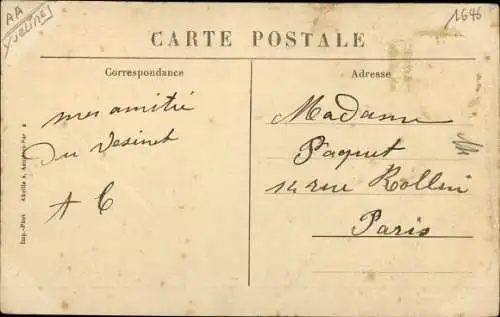 AA
Yvelines
1646
CARTE POSTALE
Correspondance
Adresse
mes amitié
Du Vesinet
A C
Madame
Paquet
14 rue Rollin
Paris
Imp.-Phot